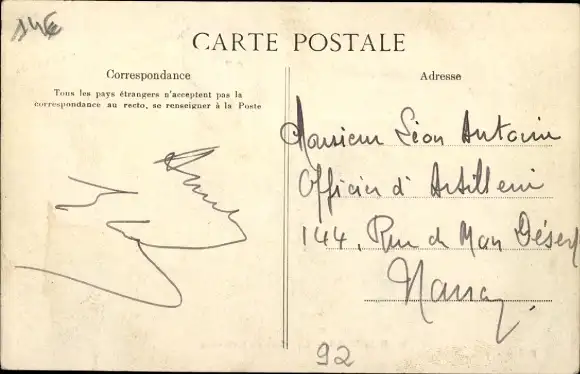 CARTE POSTALE
Correspondance
Tous les pays étrangers n'acceptent pas la
correspondance au recto, se renseigner à la Poste
Adresse
Monsieur Léon Antoine
Officier d'Artillerie
144, Rue de Mon Désert
Nancy.
92